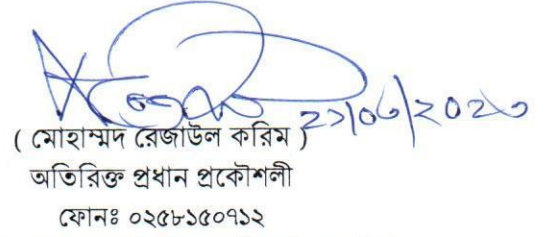 ২১/০৬/২০২৩
( মোহাম্মদ রেজাউল করিম )
অতিরিক্ত প্রধান প্রকৌশলী
ফোনঃ ০২৫৮১৫০৭১২